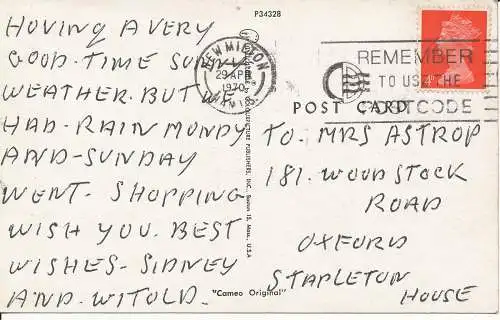 P34328
HOVING A VERY
GOOD. TIME SUNNY
WEATHER. BUT WE
HAD. RAIN MONDY
AND-SUNDAY
WENT. SHOPPING
WISH YOU. BEST
WISHES- SIDNEY
AND. WITOLD.
NEW MILTON
29 APR
1970
REMEMBER
TO USE THE
POSTCODE
POST CARD
TO. MRS ASTROP
181. WOODSTOCK
ROAD
OXFORD
STAPLETON
HOUSE
"Cameo Original"